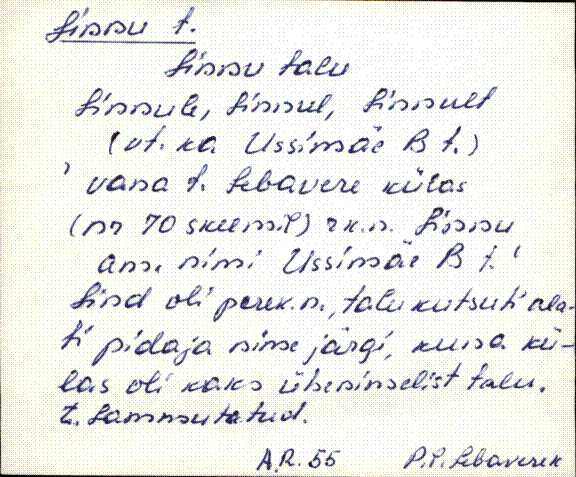 Linnu t.
Linnu talu
Linnule, Linnul, Linnult
(vt. ka Ussimäe B t.)
' vana t. Lebavere külas
(nr 70 skeemil) rk.n. Linnu
am. nimi Ussimäe B t. '
Lind oli perek.n., talu kutsuti ala-
ti pidaja nime järgi, kuna kü-
las oli kaks ühenimelist talu.
t. lammutatud.
A.R. 55 P.P. Lebaverek